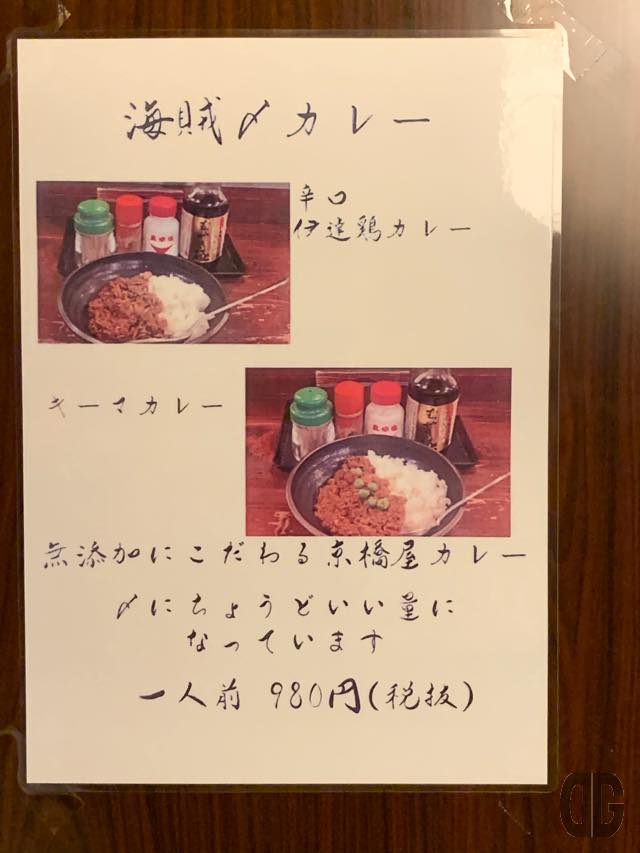 海賊〆カレー
辛口
伊達鶏カレー
キーマカレー
無添加にこだわる京橋屋カレー
〆にちょうどいい量に
なっています
一人前 980円(税抜)
DG